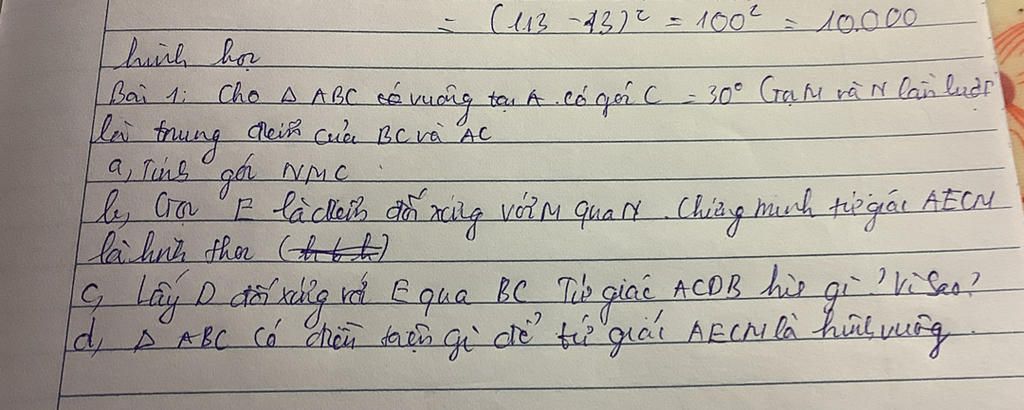 = (113 - 13)² = 100² = 10.000
hình học
Bài 1: Cho Δ ABC có vuông tại A. có góc C = 30° Gọi M và N lần lượt
là trung điểm của BC và AC
a, Tính góc NMC
b, Gọi E là điểm đối xứng với M qua N. Chứng minh tứ giác AECM
là hình thoi
c, Lấy D đối xứng với E qua BC Tứ giác ACDB hình gì? Vì sao?
d, Δ ABC có điều kiện gì để tứ giác AECM là hình vuông